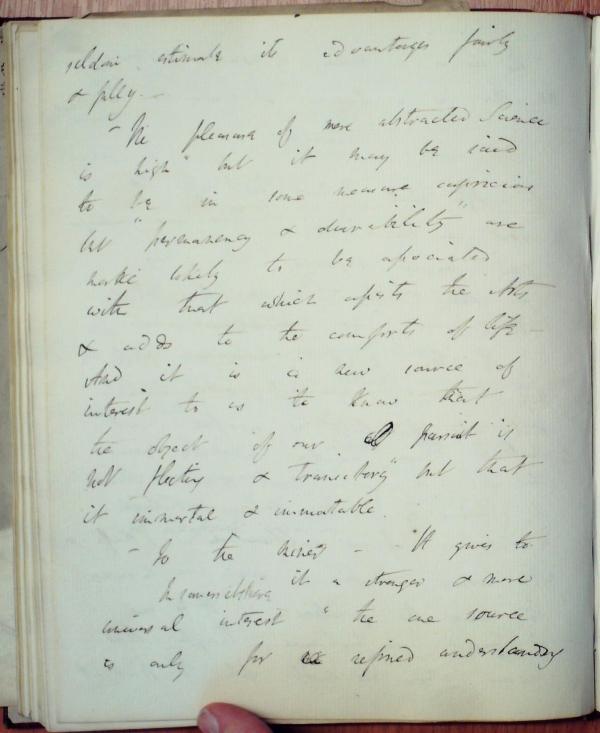 seldom estimate its advantages fairly
& fully.—
— "The pleasure of mere abstracted Science
is high" but it may be said
to be in some measure capricious
but "permanency & durability" are
more likely to be associated
with that which assists the Arts
& adds to the comforts of life —
And it is a new source of
interest to us to know that
the object of our pursuit is
not fleeting & transitory" but that
it immortal & immutable.
— To the — "It gives to
it a stronger & more
universal interest "the one source
is only for refined understanding